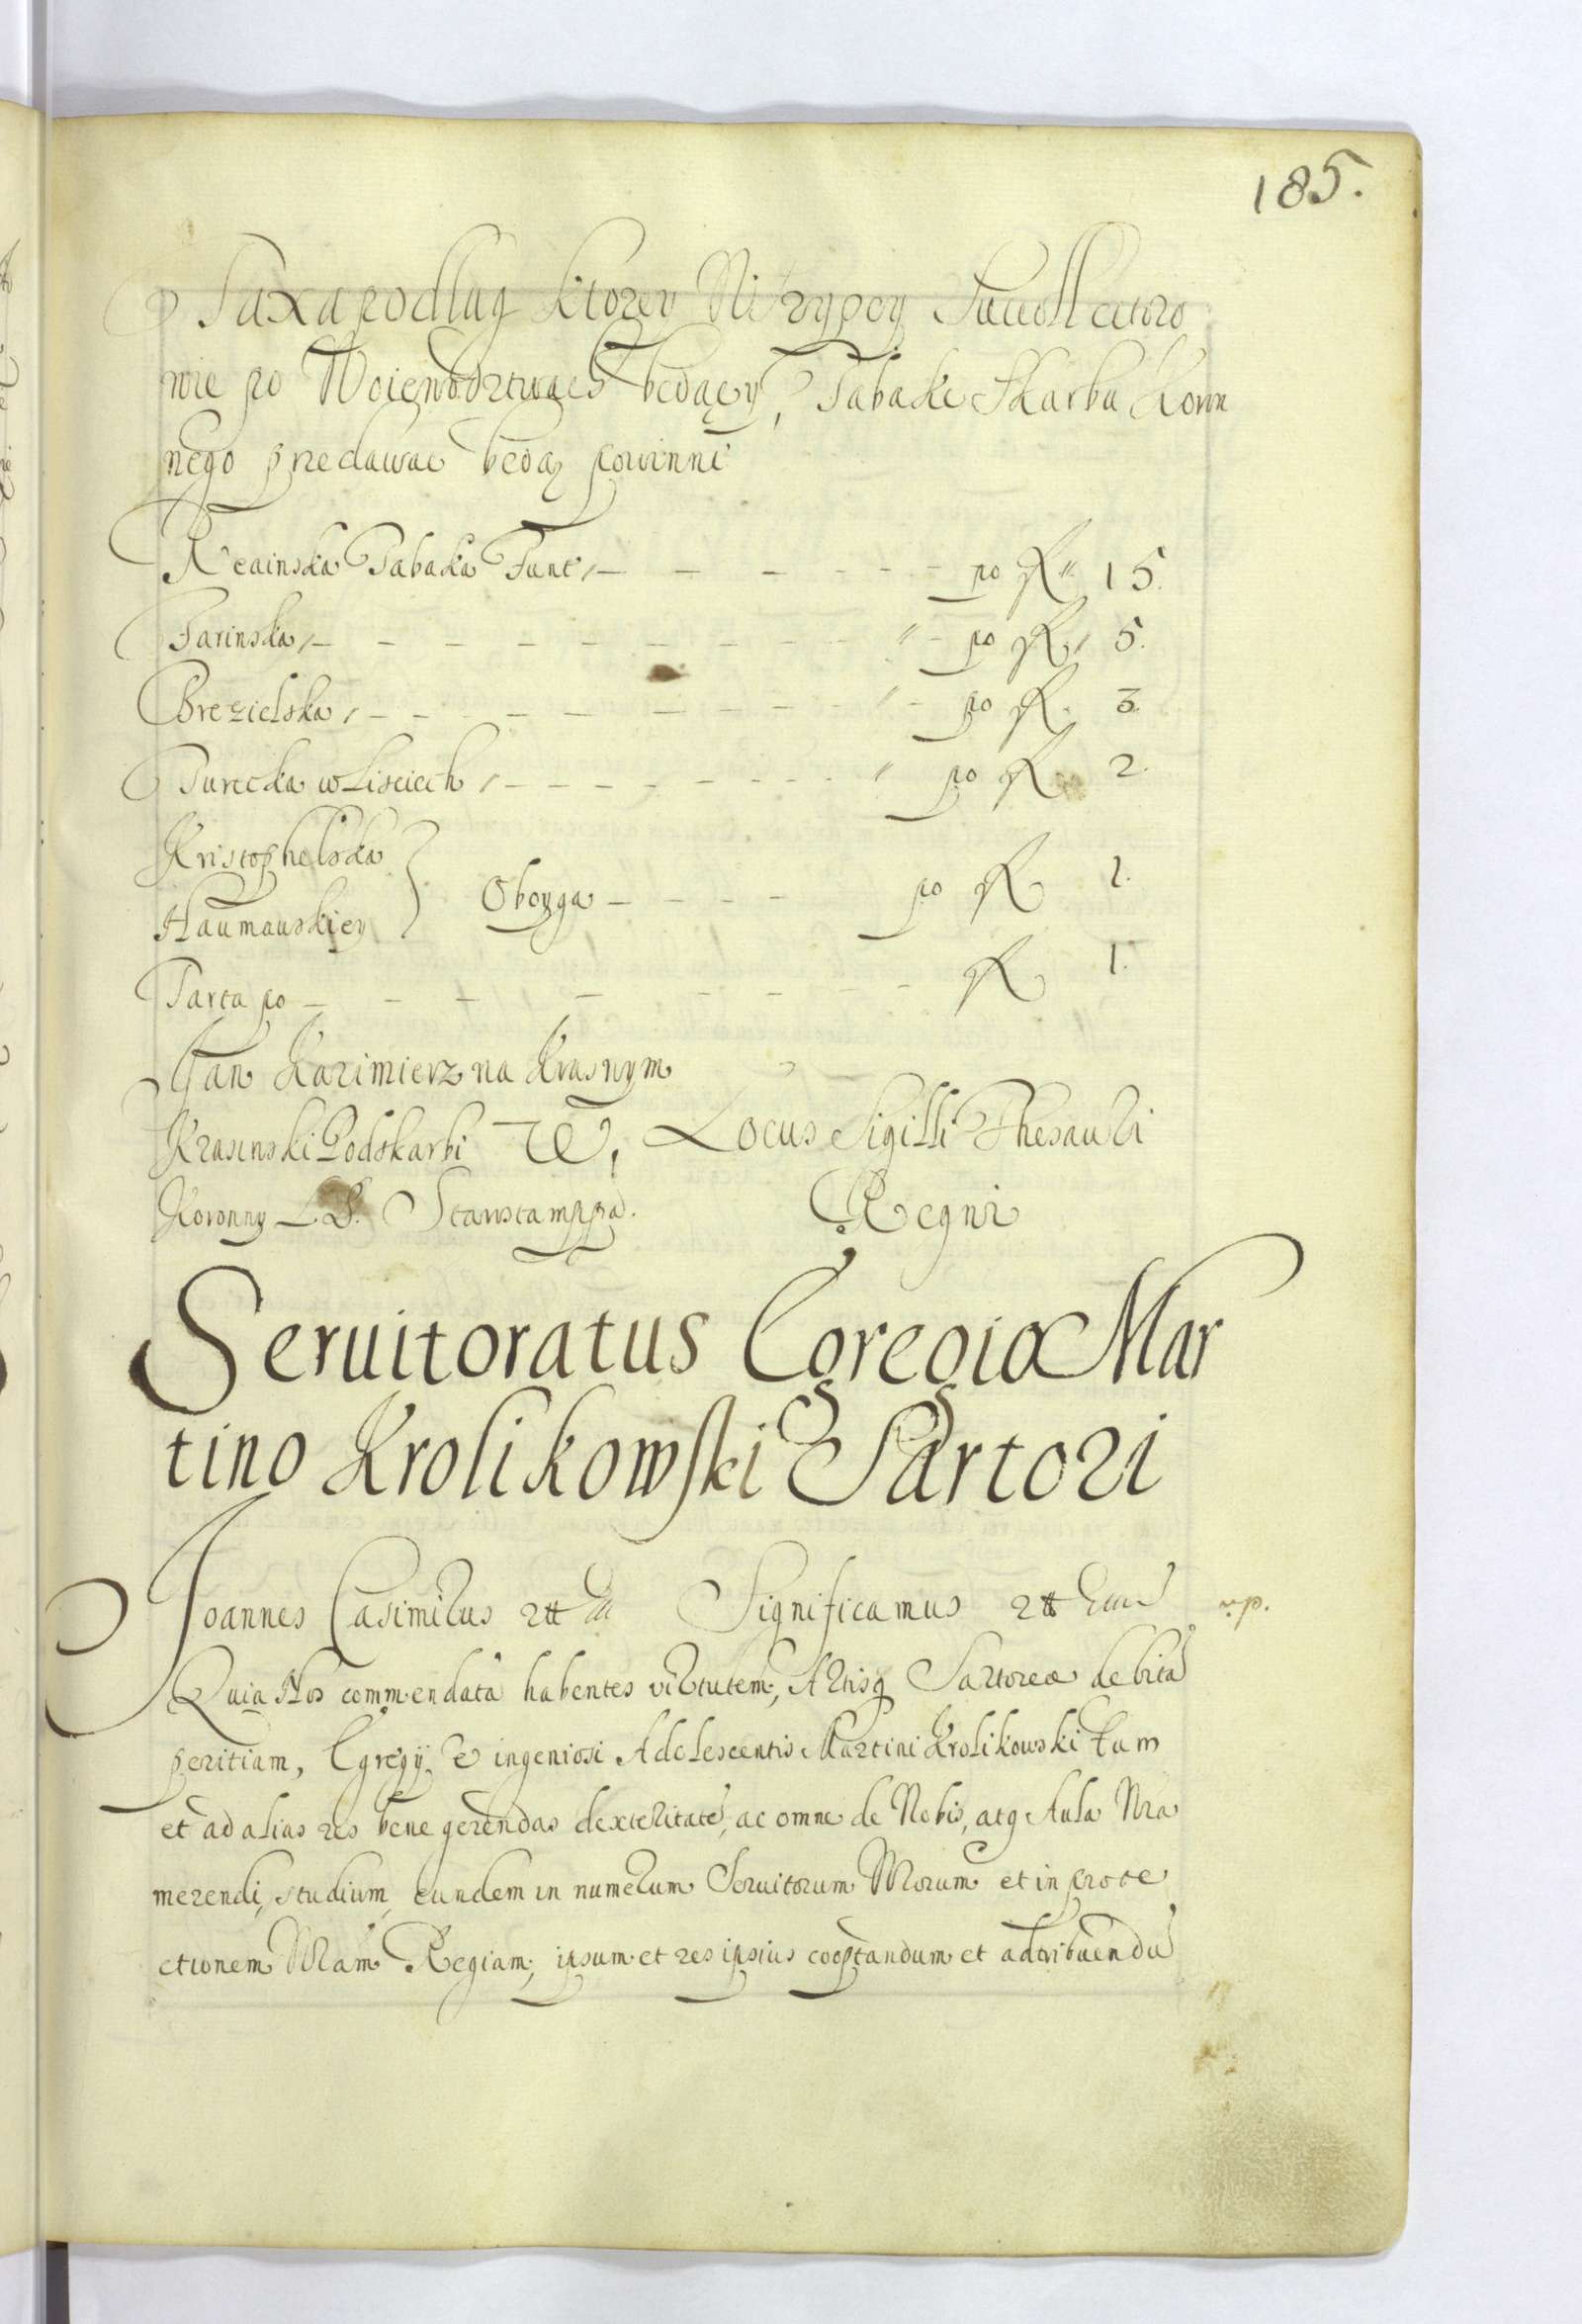 185.
Taxa podlug ktorey Ni Zypey Succollectoro
wie po Woiewodztwach bedący, Tabake Skarbu Koron
nego przedawac bedą powinni
Reainska Tabaka Funt, po fl. 15.
Farinska, po fl. 5.
Brezielska, po fl. 3.
Turecka w Lisciech, po fl. 2.
Kristophelska
Haumauskiey } Oboyga po fl. 1.
Tarta po fl. 1.
Jan Kazimierz na Krasnym
Krasinski Podskarbi W, Locus Sigilli Thesauri
Koronny L.S. Regni
Seruitoratus Egregio Mar
tino Krolikowski Sartori
Joannes Casimirus Significamus
Quia Nos commendatā habentes virtutem, Artisq Sartoreæ debitā
peritiam, Egregÿ et ingeniosi Adolescentis Martini Krolikowski tum
et ad alias res bene gerendas dexteritatē, ac omne de Nobis, atq Aula Nra
merendi, studium, eundem in numerum Seruitorum Nrorum et in prote
ctionem Nram Regiam, ipsum et res ipsius cooptandum et adtribuendū